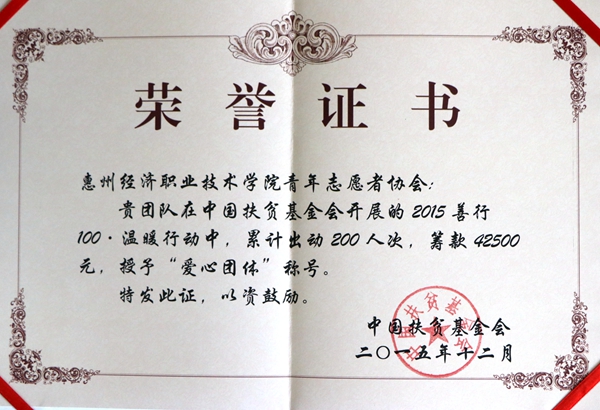 荣誉证书
惠州经济职业技术学院青年志愿者协会:
贵团队在中国扶贫基金会开展的2015善行
100·温暖行动中,累计出动200人次,筹款42500
元,授予“爱心团体”称号。
特发此证,以资鼓励。
中国扶贫基金会
中国扶贫基金会
二〇一五年十二月